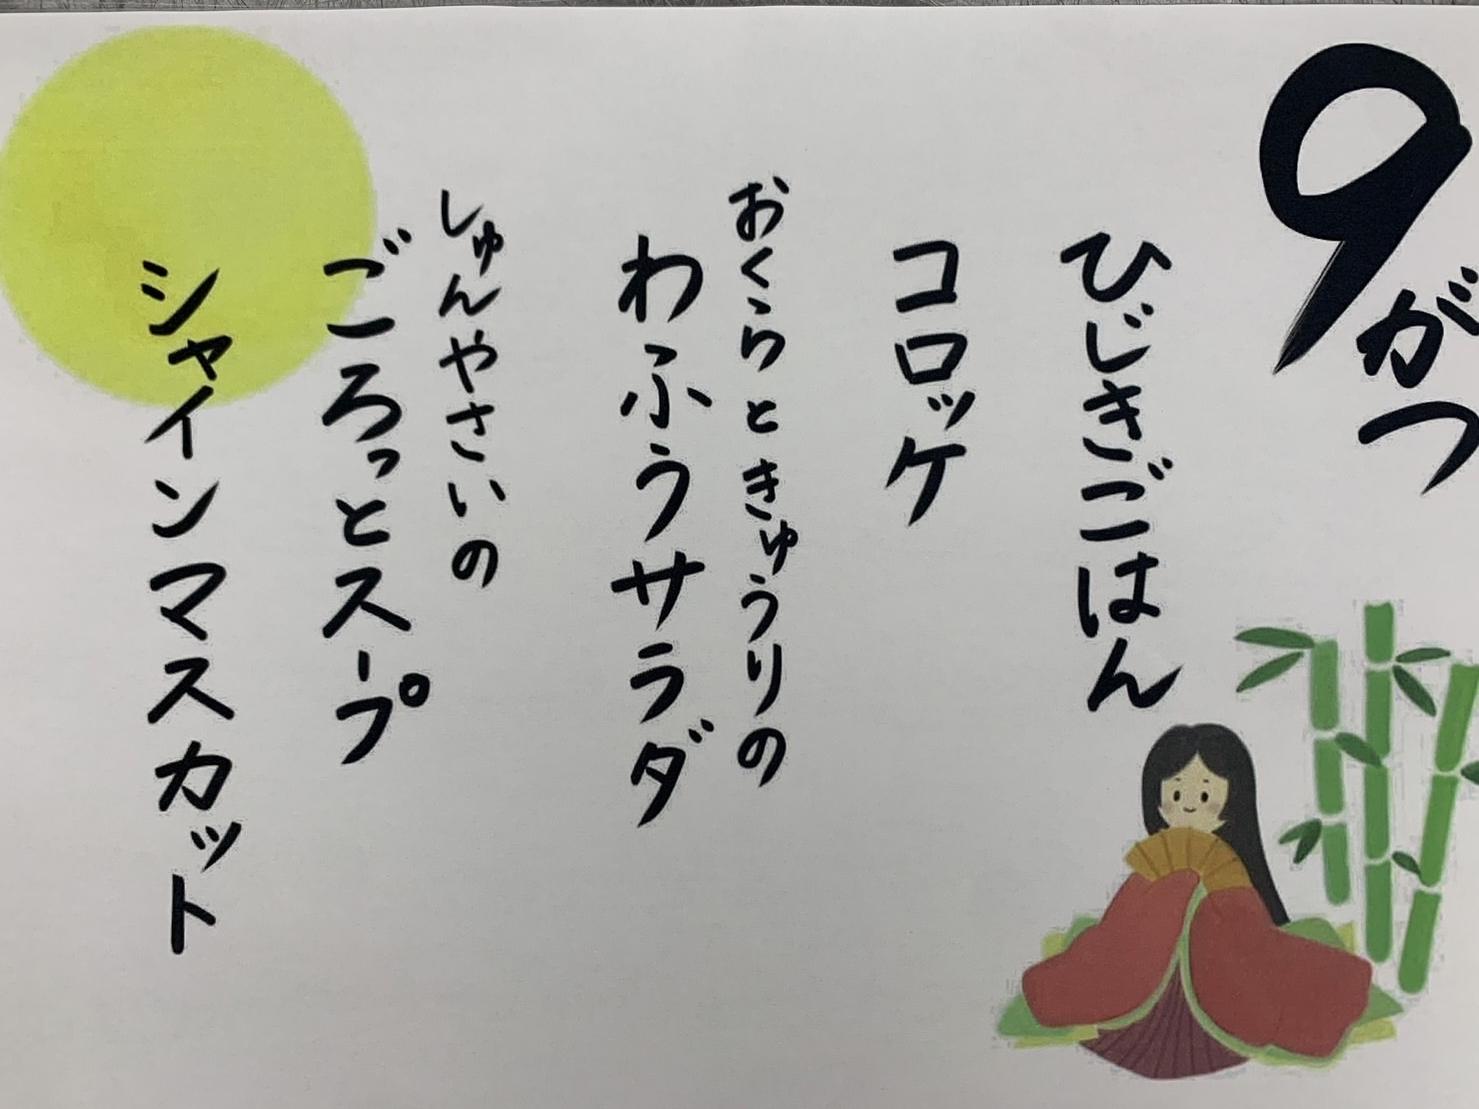 9がつ
ひじきごはん
コロッケ
おくらときゅうりの
わふうサラダ
しゅんやさいの
ごろっとスープ
シャインマスカット